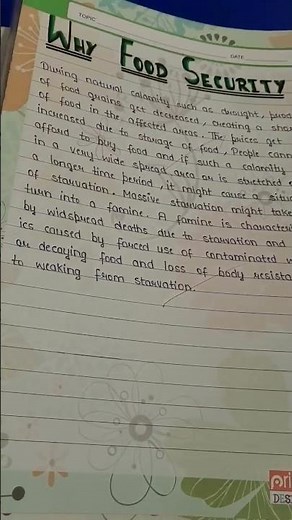 TOPIC
DATE
WHY FOOD SECURITY
During natural calamity such as drought,
of food grains get decreased, creating a
of food in the affected areas. The prices get
increased due to storage of food. People
afford to buy food and if such a calamity
in a very wide spread area or is stretched
a longer time period, it might cause a
of starvation. Massive starvation might take
turn into a famine. A famine is
by widspread deaths due to starvation and
ics caused by forced use of contaminated
or decaying food and loss of body
to weaking from starvation.